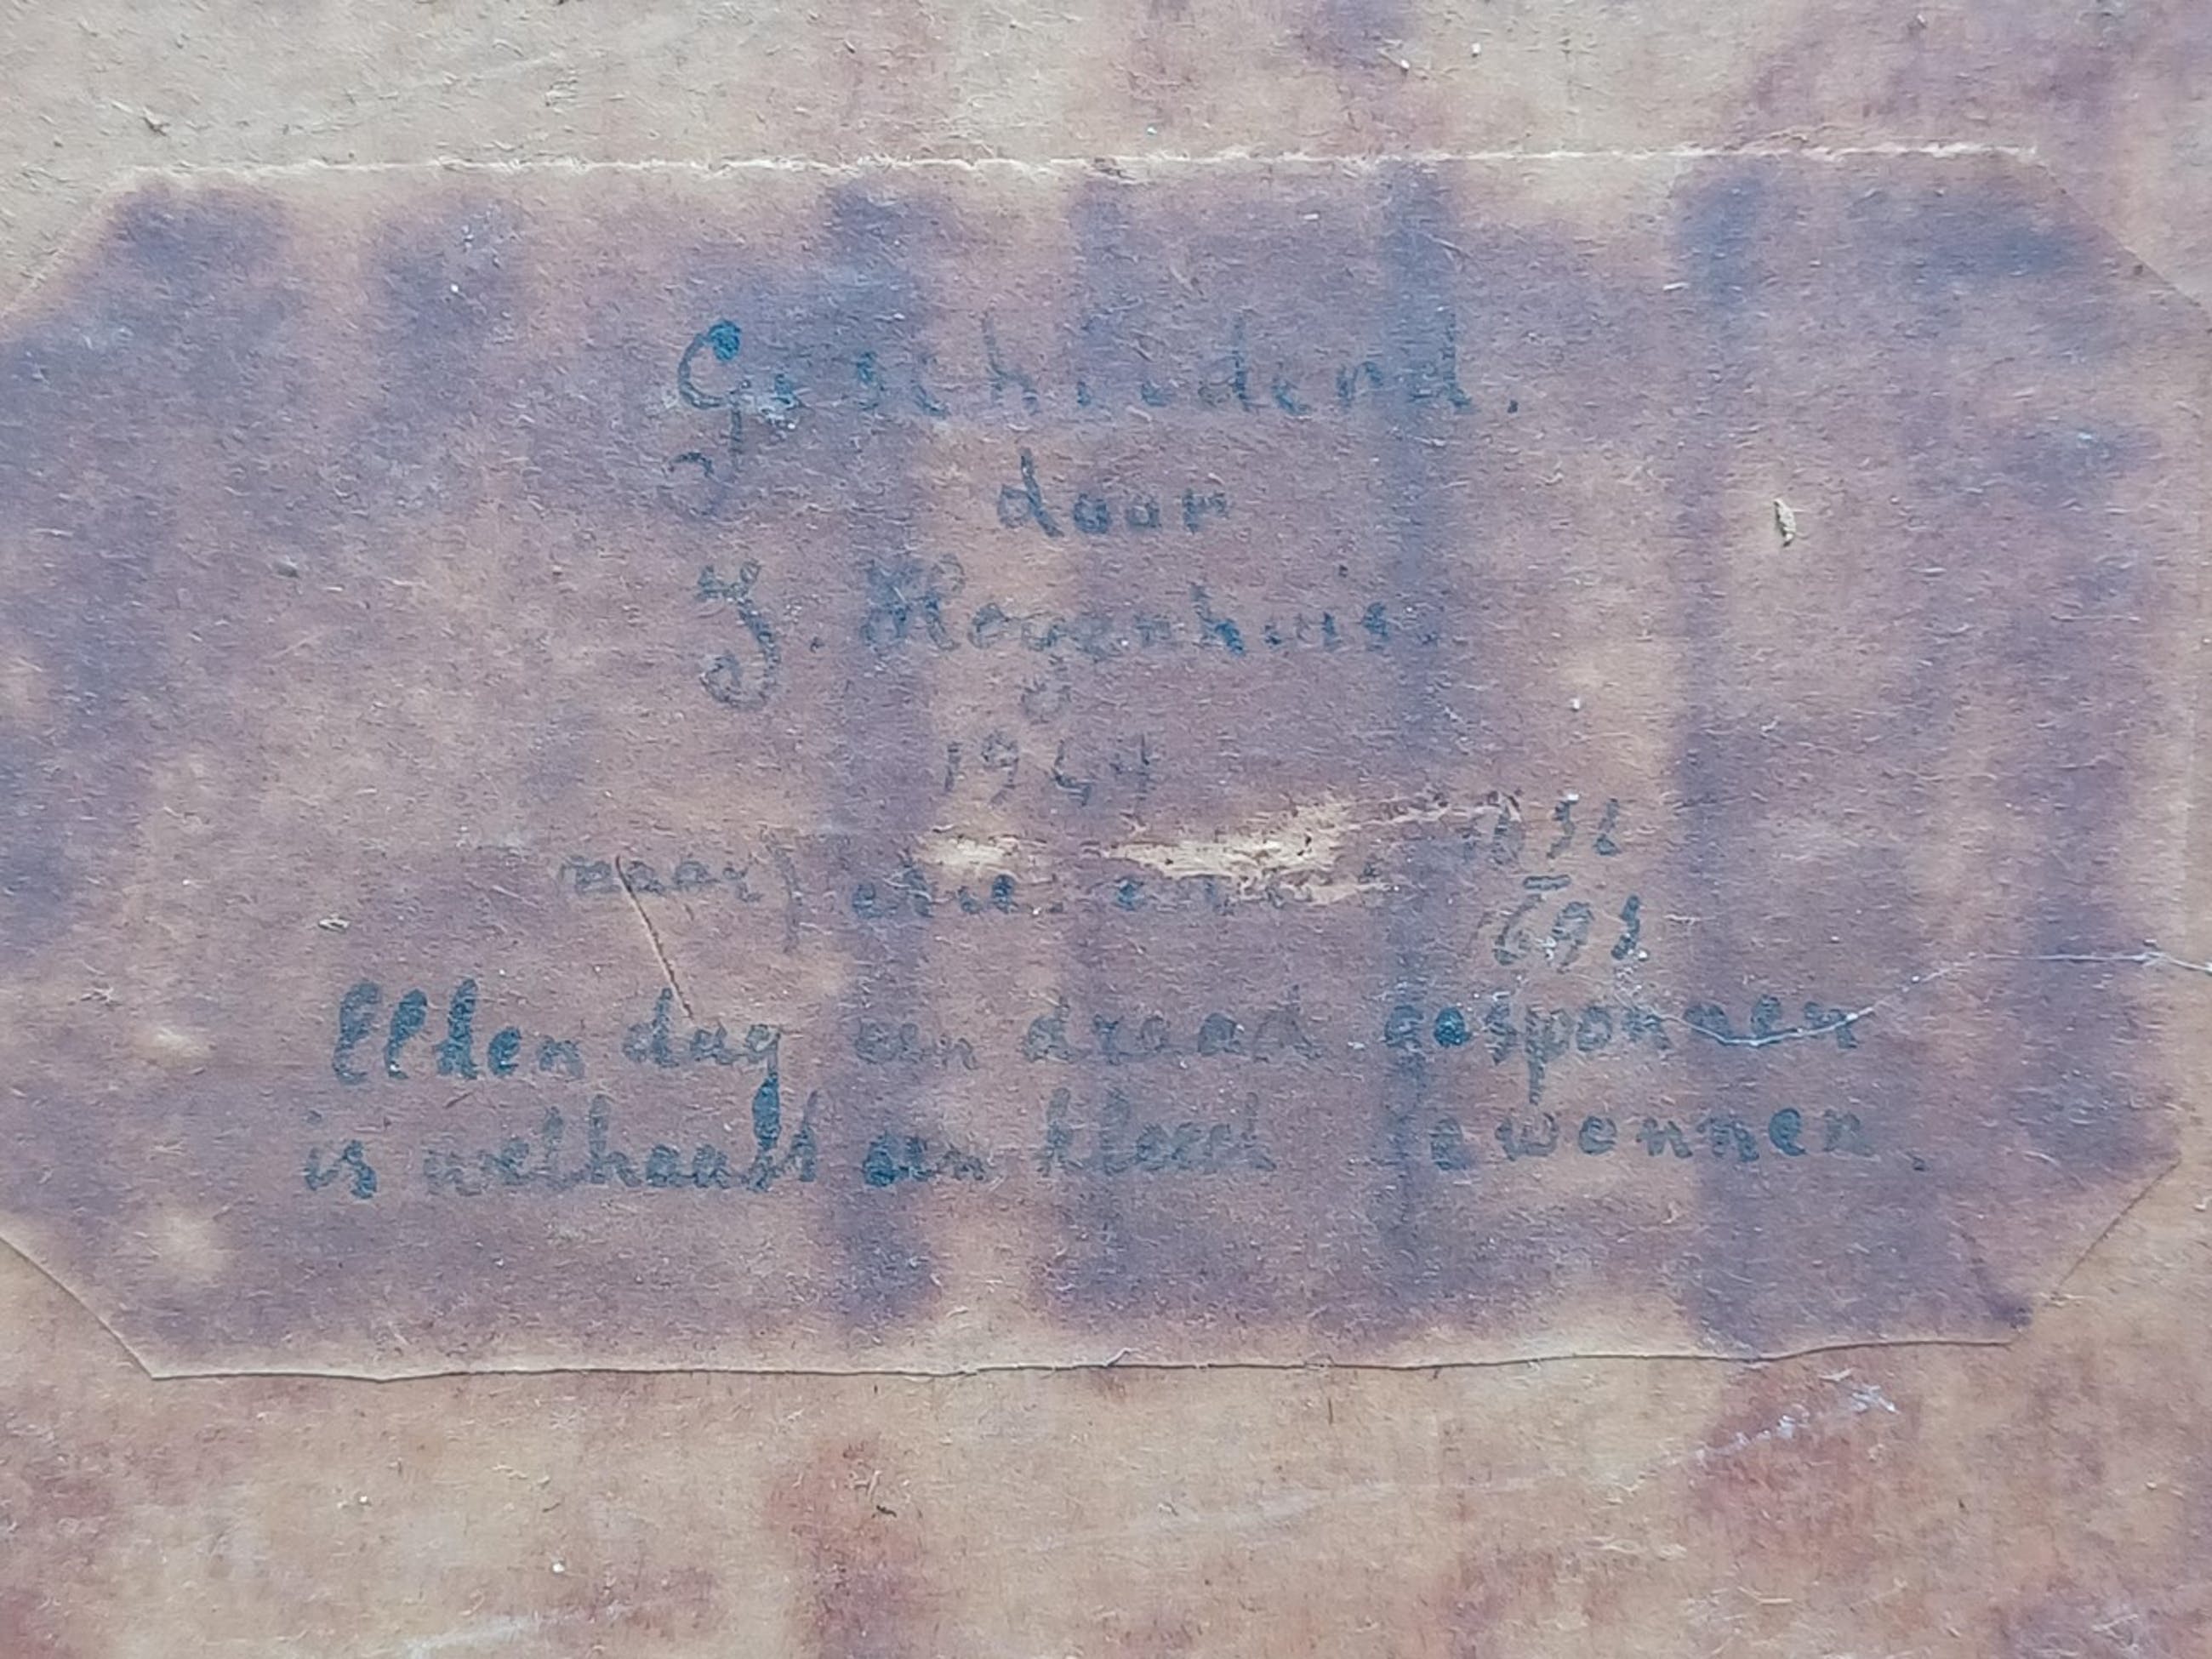 Geschilderd.
door
J. Hogenhuis.
1944
naar
1693
Elken dag een draad gesponnen
is welhaast een kleed gewonnen.